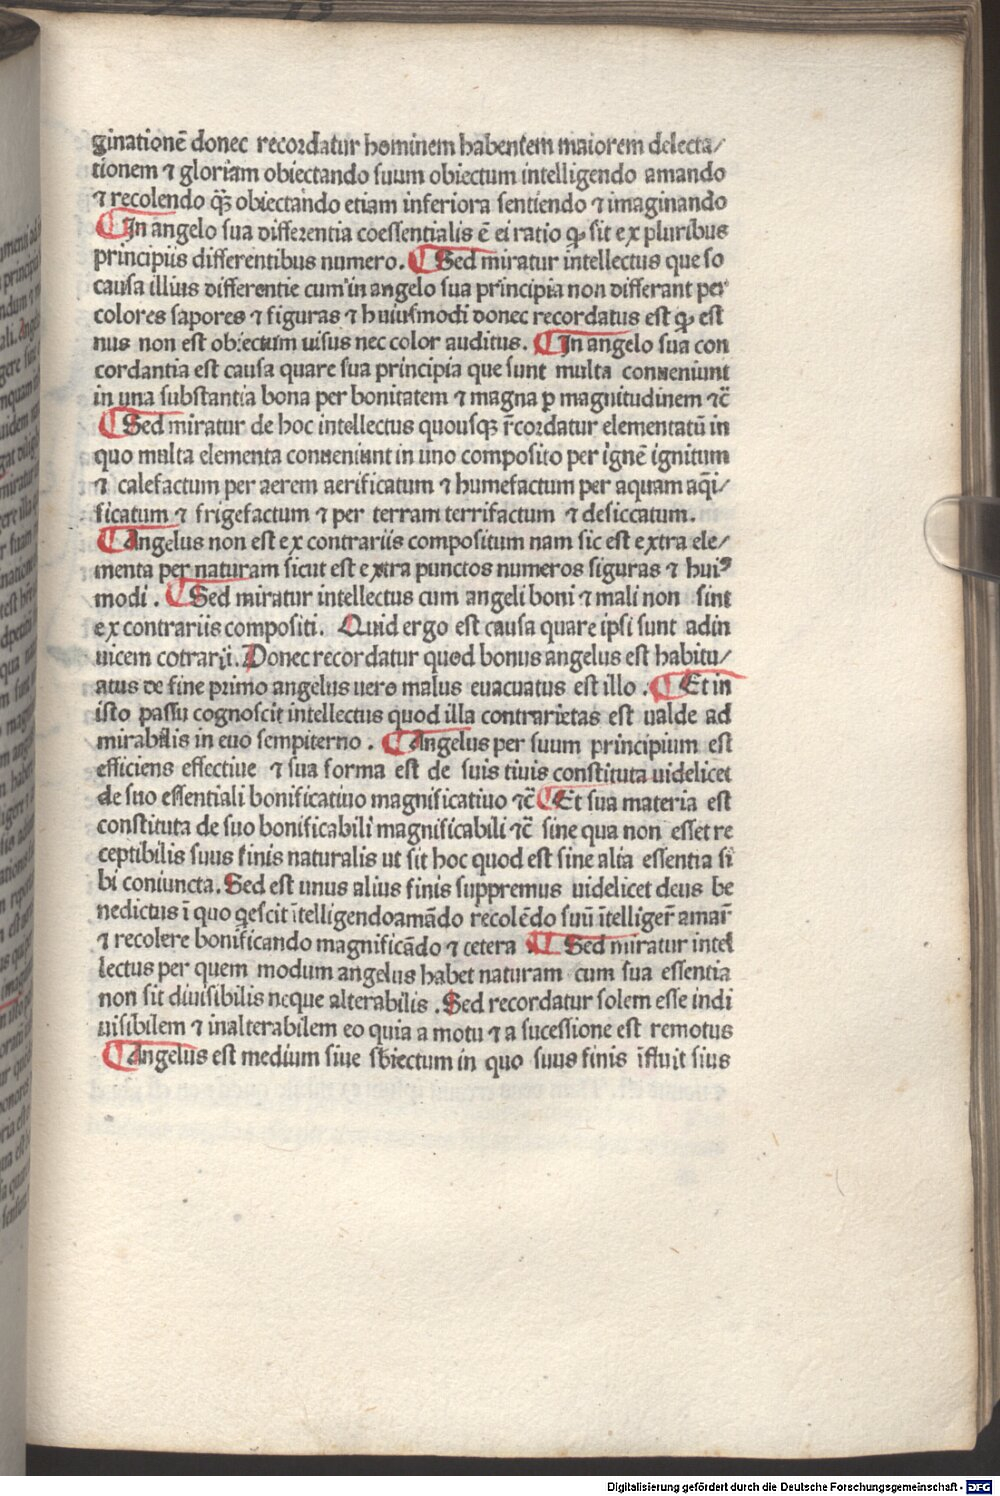 ginationē donec recordatur hominem habentem maiorem delecta/
tionem ⁊ gloriam obiectando suum obiectum intelligendo amando
⁊ recolendo q̄ꝫ obiectando etiam inferiora sentiendo ⁊ imaginando
¶ In angelo sua differentia coessentialis ē ei ratio ꝙ sit ex pluribus
principiis differentibus numero. ¶ Sed miratur intellectus que so
causa illius differentie cum in angelo sua principia non differant per
colores sapores ⁊ figuras ⁊ huiusmodi donec recordatus est ꝙ est
nus non est obiectum uisus nec color auditus. ¶ In angelo sua con
cordantia est causa quare sua principia que sunt multa conueniunt
in una substantia bona per bonitatem ⁊ magna ꝑ magnitudinem ⁊c̄
¶ Sed miratur de hoc intellectus quousqꝫ r̄cordatur elementatū in
quo multa elementa conueniunt in uno composito per ignē ignitum
⁊ calefactum per aerem aerificatum ⁊ humefactum per aquam aq̄i/
ficatum ⁊ frigefactum ⁊ per terram terrifactum ⁊ desiccatum.
¶ Angelus non est ex contrariis compositum nam sic est extra ele/
menta per naturam sicut est extra punctos numeros figuras ⁊ huiꝰ
modi. ¶ Sed miratur intellectus cum angeli boni ⁊ mali non sint
ex contrariis compositi. Quid ergo est causa quare ipsi sunt adin
uicem cotrarii. Donec recordatur quod bonus angelus est habitu/
atus de fine primo angelus uero malus euacuatus est illo. ¶ Et in
isto passu cognoscit intellectus quod illa contrarietas est ualde ad
mirabilis in euo sempiterno. ¶ Angelus per suum principium est
efficiens effectiue ⁊ sua forma est de suis tiuis constituta uidelicet
de suo essentiali bonificatiuo magnificatiuo ⁊c̄ ¶ Et sua materia est
constituta de suo bonificabili magnificabili ⁊c̄ sine qua non esset re
ceptibilis suus finis naturalis ut sit hoc quod est sine alia essentia si
bi coniuncta. Sed est unus alius finis suppremus uidelicet deus be
nedictus ī quo q̄escit ītelligendoamādo recolēdo suū ītelliger̄ amar̄
⁊ recolere bonificando magnificādo ⁊ cetera ¶ Sed miratur intel
lectus per quem modum angelus habet naturam cum sua essentia
non sit diuisibilis neque alterabilis. Sed recordatur solem esse indi
uisibilem ⁊ inalterabilem eo quia a motu ⁊ a sucessione est remotus
¶ Angelus est medium siue sbiectum in quo suus finis īfluit suis
Digitalisierung gefördert durch die Deutsche Forschungsgemeinschaft - DFG